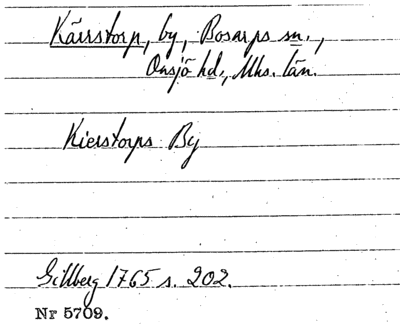 Kärrstorp, by, Bosarps sn.,
Onsjö hd., Mhs. län.
Kierstorps By
Gillberg 1765 s. 202.
Nr 5709.